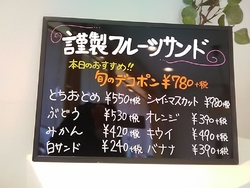 謹製フルーツサンド
本日のおすすめ!!
旬のデコポン ¥780+税
とちおとめ ¥550+税 シャインマスカット ¥980+税
ぶどう ¥530+税 オレンジ ¥390+税
みかん ¥420+税 キウイ ¥490+税
白サンド ¥240+税 バナナ ¥390+税